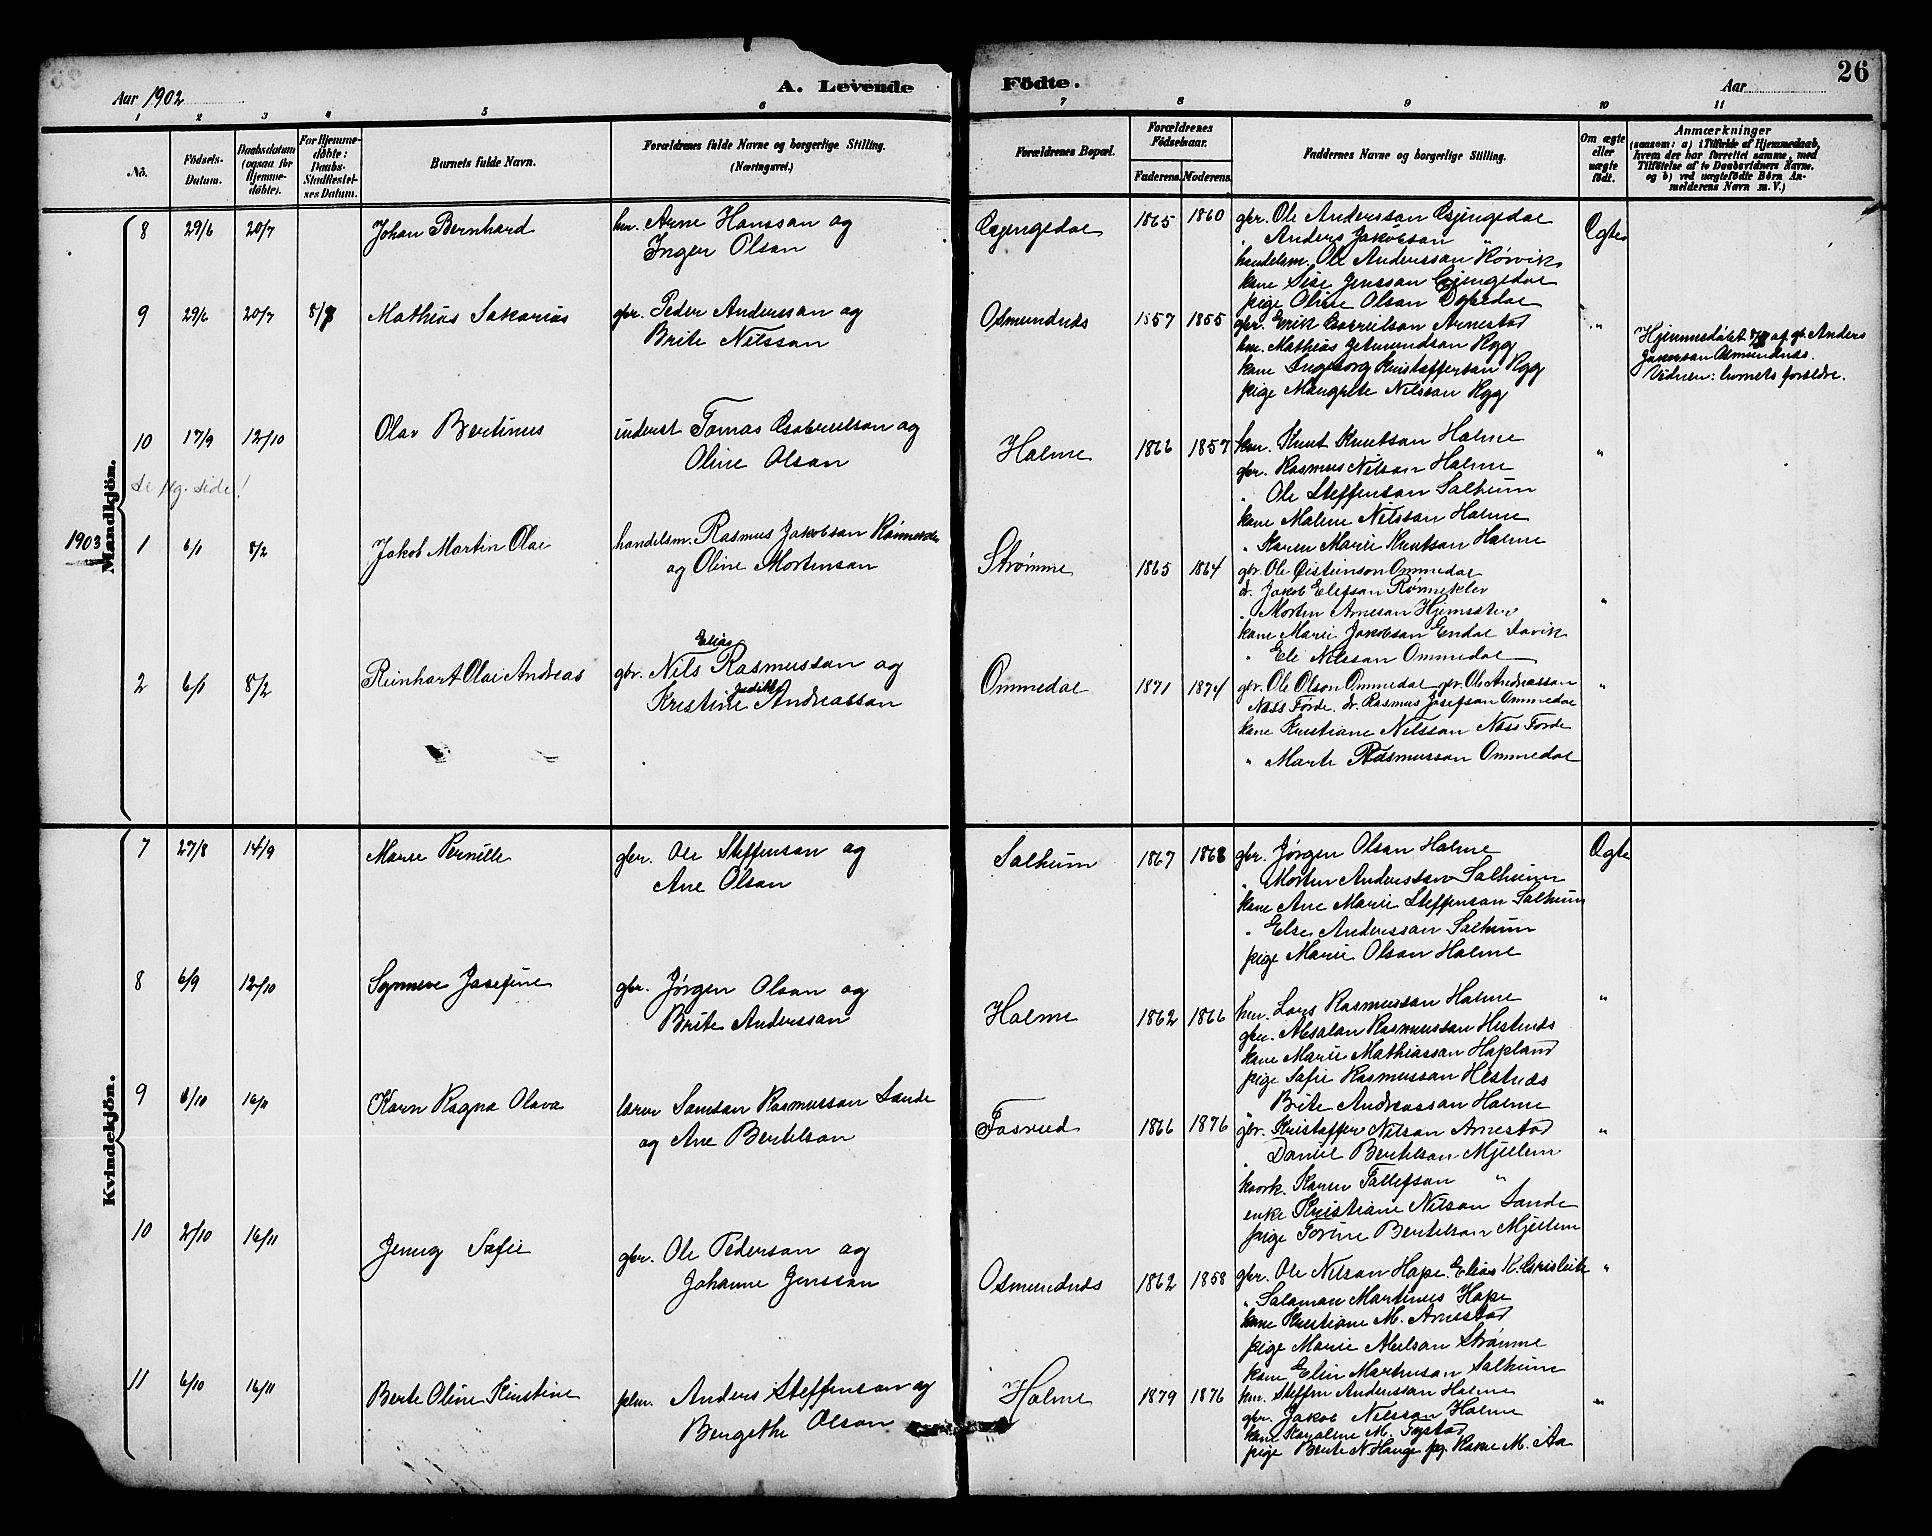 26
Aar 1902
A. Levende
Födte.
Aar
1 2 3 4 5 6 7 8 9 10 11
No.
Födsels-Datum.
Daabsdatum (ogsaa for Hjemme-döbte).
For Hjemme-döbte: Daabs-Stadfæstel-ses Datum.
Barnets fulde Navn.
Forældrenes fulde Navne og borgerlige Stilling. (Næringsvei.)
Forældrenes Bopæl.
Forældrenes Födselsaar.
Faderens. Moderens.
Faddernes Navne og borgerlige Stilling.
Om ægte eller uægte födt.
Anmærkninger
(saasom: a) i Tilfælde af Hjemmedaab, hvem der har forrettet samme, med Tilföielse af to Daabsvidners Navne. og b) ved uægtefödte Börn An-melderens Navn m. V.)
Mandkjön.
8 29/6 20/7 Johan Bernhard
hm. Arne Hanssan og
Inger Olsan
Gjengedal 1865 1860
gbr. Ole Anderssan Gjengedal
" Anders Jakobsan "
handelsm. Ole Anderssan Rørvik
kone Sise Jenssan Gjengedal
pige Oline Olsan Dpedal
Ægte
9 29/6 20/7 8/8 Mathias Sakarias
gbr. Peder Anderssan og
Brite Nilssan
Osmundnds 1857 1855
gbr. Erik Gabrielsan Arnestad
hm. Mathias Jetmundsan Ryg
kone Ingeborg Kristaffersan Ryg
pige Mangrete Nilssan Ryg
"
Hjemmedøbt af gb. Anders
Jakobsan Osmundnds.
Vidner: barnets forældre.
10 17/9 12/10 Olav Bertinus
inderst Tomas Gabrielsan og
Oline Olsan
Holme 1866 1857
hm. Knut Knutsan Holme
gbr. Rasmus Nilsan Holme
" Ole Steffensan Salhum
kone Malene Nilssan Holme
" Karen Marie Knutsan Holme
"
se flg. side!
1903
1 6/1 8/2 Jakob Martin Olai
handelsm. Rasmus Jakobsan Rønnekle
og Oline Mortensan
Strømme 1865 1864
gbr. Ole Øistensan Ommedal
dr. Jakob Elefsan Rønneklev
" Morten Arnesan Hjemsæter
kone Marie Jakobsan Endal Davik
" Eli Nilssan Ommedal
"
2 6/1 8/2 Reinhart Olai Andreas
Elias
gbr. Nils Rasmussan og
Judithe
Kristine Andreassan
Ommedal 1871 1874
gbr. Ole Olsan Ommedal gbr. Ole Andreassan
Næss Førde. dr. Rasmus Josefsan Ommedal
kone Kristiane Nilssan Næss Førde
" Marte Rasmussan Ommedal
"
Kvindekjön.
7 27/8 14/9 Marie Pernille
gbr. Ole Steffensan og
Ane Olsan
Salhum 1867 1868
gbr. Jørgen Olsan Holme
" Morten Anderssan Salhum
kone Ane Marie Steffensan Salhum
" Else Anderssan Salhum
pige Marie Olsan Holme
Ægte
8 6/9 12/10 Synneve Josefine
gbr. Jørgen Olsan og
Brite Anderssan
Holme 1862 1866
hm. Lars Rasmussan Holme
gbr. Absalon Rasmussan Hestnds
kone Marie Mathiassan Hapland
pige Safie Rasmussan Hestnds
" Brite Andreassan Holme
"
9 6/10 16/11 Karn Ragna Olava
lærer Samsan Rasmussan Sande
og Ane Bertelsan
Fosrud 1866 1876
gbr. Kristaffer Nilsan Arnestad
" Daniel Bertelsan Mjellem
kaark. Karen Tallefsan "
enke Kristiane Nilsan Sande
pige Torine Bertelsan Mjellem
"
10 2/10 16/11 Jenny Safie
gbr. Ole Pedersan og
Johanne Jenssan
Osmundnds 1862 1858
gbr. Ole Nilsan Hope. Elias K.
" Salaman Martinus Hope
kone Kristiane M. Arnestad
pige Marie Abelsan Strømme
kone Elin Martensan Salhum
"
11 6/10 16/11 Berte Oline Kirstine
plm. Anders Steffensan og
Bergethe Olsan
Holme 1879 1876
hm. Steffen Anderssan Holme
gbr. Jakob Nilssan Holme
kone Karoline M. Tystad
pige Berte N. Hauge pg. M. Aa
"